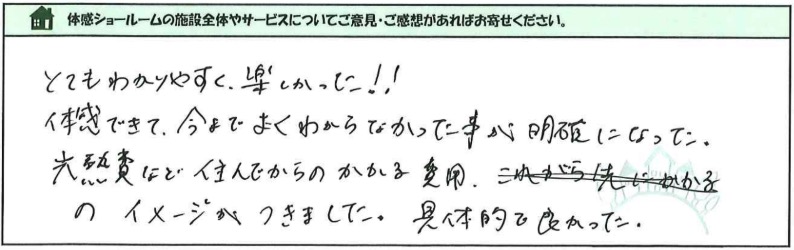 体感ショールームの施設全体やサービスについてご意見・ご感想があればお寄せください。
とてもわかりやすく、楽しかった!!
体感できて、今までよくわからなかった事が明確になった。
光熱費など住んでからのかかる費用、これから先にかかる
のイメージがつきました。具体的で良かった。